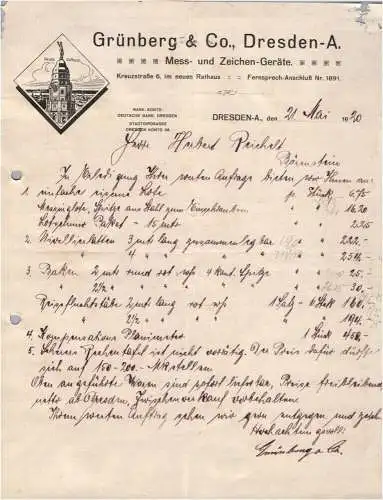 Grünberg & Co., Dresden-A.
Mess- und Zeichen-Geräte.
Kreuzstraße 6, im neuen Rathaus : : Fernsprech-Anschluß Nr. 1891.
BANK-KONTO:
DEUTSCHE BANK, DRESDEN
STADTGIROKASSE
DRESDEN KONTO
DRESDEN-A., den 21 Mai 1920
Herrn Herbert Reichelt
Bärenstein
In Erledigung Ihrer werten Anfrage bieten wir Ihnen an
1. einfache eiserne Lote p. Stück 6.75
Messinglote, Spitze aus Stahl zum " " 16.20
Paket - 15 mtr
2. Nivellierlatten 3 mtr lang zusammenlegbar " 222.-
" 4 " " "
3. Baken 2 mtr rund rot w/s 4 kant. Spitze " 25.-
" 2½ " " " " " 30.-
Reissfluchtstäbe 2 mtr lang rot w/s 1 Satz - 6 Stck 160.-
" 2½ " " " " "
4. Kompensations Planimeter 1 Stück 450.-
5. ist nicht vorrätig. Der Preis dafür dürfte
sich auf 150-200.- Mk stellen
Oben angeführte Waren sind sofort lieferbar, Preise freibleibend
netto ab Dresden, Zwischenverkauf vorbehalten.
Ihrem werten Auftrag sehen wir gern entgegen und zeichnen
Hochachtungsvoll:
Grünberg & Co.